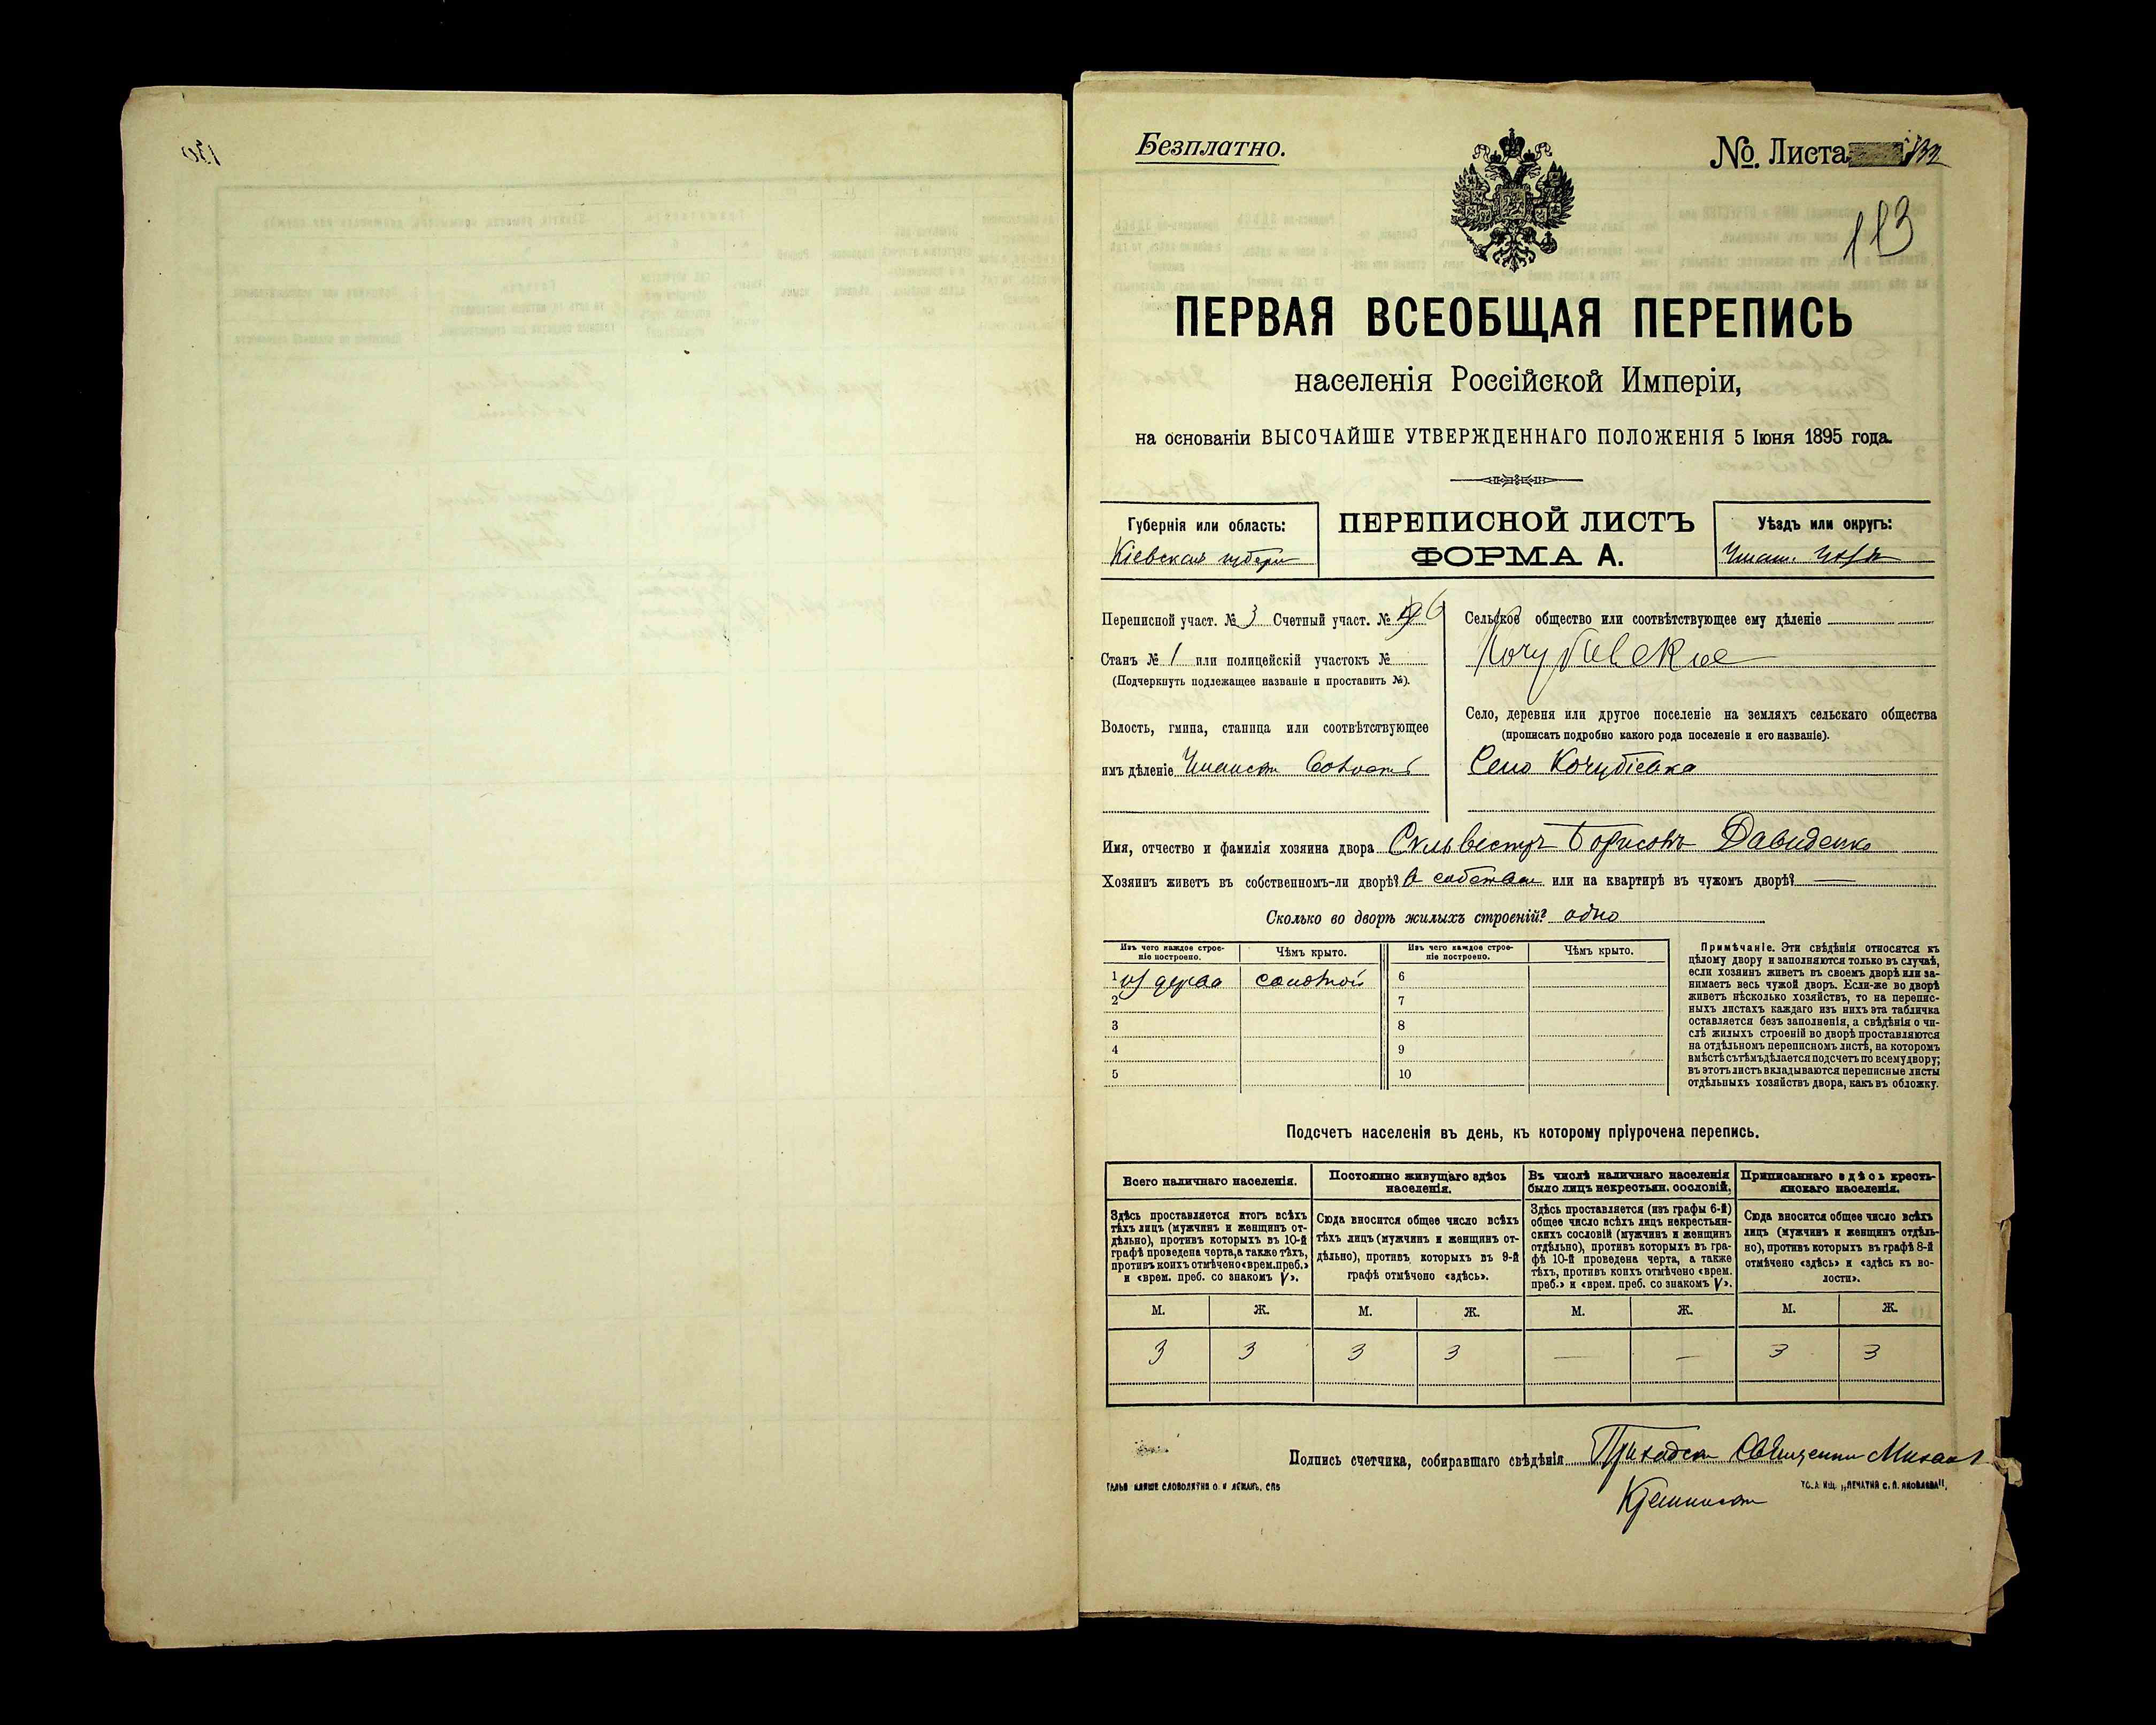 Безплатно.
№. Листа
113
ПЕРВАЯ ВСЕОБЩАЯ ПЕРЕПИСЬ
населенія Россійской Имперіи,
на основаніи ВЫСОЧАЙШЕ УТВЕРЖДЕННАГО ПОЛОЖЕНІЯ 5 Іюня 1895 года.
Губернія или область:
Кіевская губерн
ПЕРЕПИСНОЙ ЛИСТЪ
ФОРМА А.
Уѣздъ или округъ:
Уман.
Переписной участ. № 3 Счетный участ. № 6
Станъ № 1 или полицейскій участокъ №
(Подчеркнуть подлежащее названіе и проставить №).
Волость, гмина, станица или соотвѣтствующее
имъ дѣленіе Уманск волость
Сельское общество или соотвѣтствующее ему дѣленіе
Кочубіевское
Село, деревня или другое поселеніе на земляхъ сельскаго общества
(прописать подробно какого рода поселеніе и его названіе).
Село Кочубіевка
Имя, отчество и фамилія хозяина двора Сильвестръ Борисовъ Давиденко
Хозяинъ живетъ въ собственномъ-ли дворѣ? в собствен или на квартирѣ въ чужомъ дворѣ? —
Сколько во дворѣ жилыхъ строеній? одно
Изъ чего каждое строе-
ніе построено.
Чѣмъ крыто.
Изъ чего каждое строе-
ніе построено.
Чѣмъ крыто.
1 из дерева соломой 6
2 7
3 8
4 9
5 10
Примѣчаніе. Эти свѣдѣнія относятся къ
цѣлому двору и заполняются только въ случаѣ,
если хозяинъ живетъ въ своемъ дворѣ или за-
нимаетъ весь чужой дворъ. Если-же во дворѣ
живетъ нѣсколько хозяйствъ, то на перепис-
ныхъ листахъ каждаго изъ нихъ эта табличка
оставляется безъ заполненія, а свѣдѣнія о чи-
слѣ жилыхъ строеній во дворѣ проставляются
на отдѣльномъ переписномъ листѣ, на которомъ
вмѣстѣ съ тѣмъ дѣлается подсчетъ по всему двору;
въ этотъ листъ вкладываются переписные листы
отдѣльныхъ хозяйствъ двора, какъ въ обложку.
Подсчетъ населенія въ день, къ которому пріурочена перепись.
Всего наличнаго населенія.
Здѣсь проставляется итогъ всѣхъ
тѣхъ лицъ (мужчинъ и женщинъ от-
дѣльно), противъ которыхъ въ 10-й
графѣ проведена черта, а также тѣхъ,
противъ коихъ отмѣчено «врем. преб.»
и «врем. преб. со знакомъ V».
Постоянно живущаго здѣсь
населенія.
Сюда вносится общее число всѣхъ
тѣхъ лицъ (мужчинъ и женщинъ от-
дѣльно), противъ которыхъ въ 9-й
графѣ отмѣчено «здѣсь».
Въ числѣ наличнаго населенія
было лицъ некрестьян. сословій.
Здѣсь проставляется (изъ графы 6-й)
общее число всѣхъ лицъ некрестьян-
скихъ сословій (мужчинъ и женщинъ
отдѣльно), противъ которыхъ въ гра-
фѣ 10-й проведена черта, а также
тѣхъ, противъ коихъ отмѣчено «врем.
преб.» и «врем. преб. со знакомъ V».
Приписаннаго здѣсь кресть-
янскаго населенія.
Сюда вносится общее число всѣхъ
лицъ (мужчинъ и женщинъ отдѣль-
но), противъ которыхъ въ графѣ 8-й
отмѣчено «здѣсь» и «здѣсь къ во-
лости».
М. Ж. М. Ж. М. Ж. М. Ж.
3 3 3 3 — — 3 3
Подпись счетчика, собиравшаго свѣдѣнія Приходск Священни Михаил